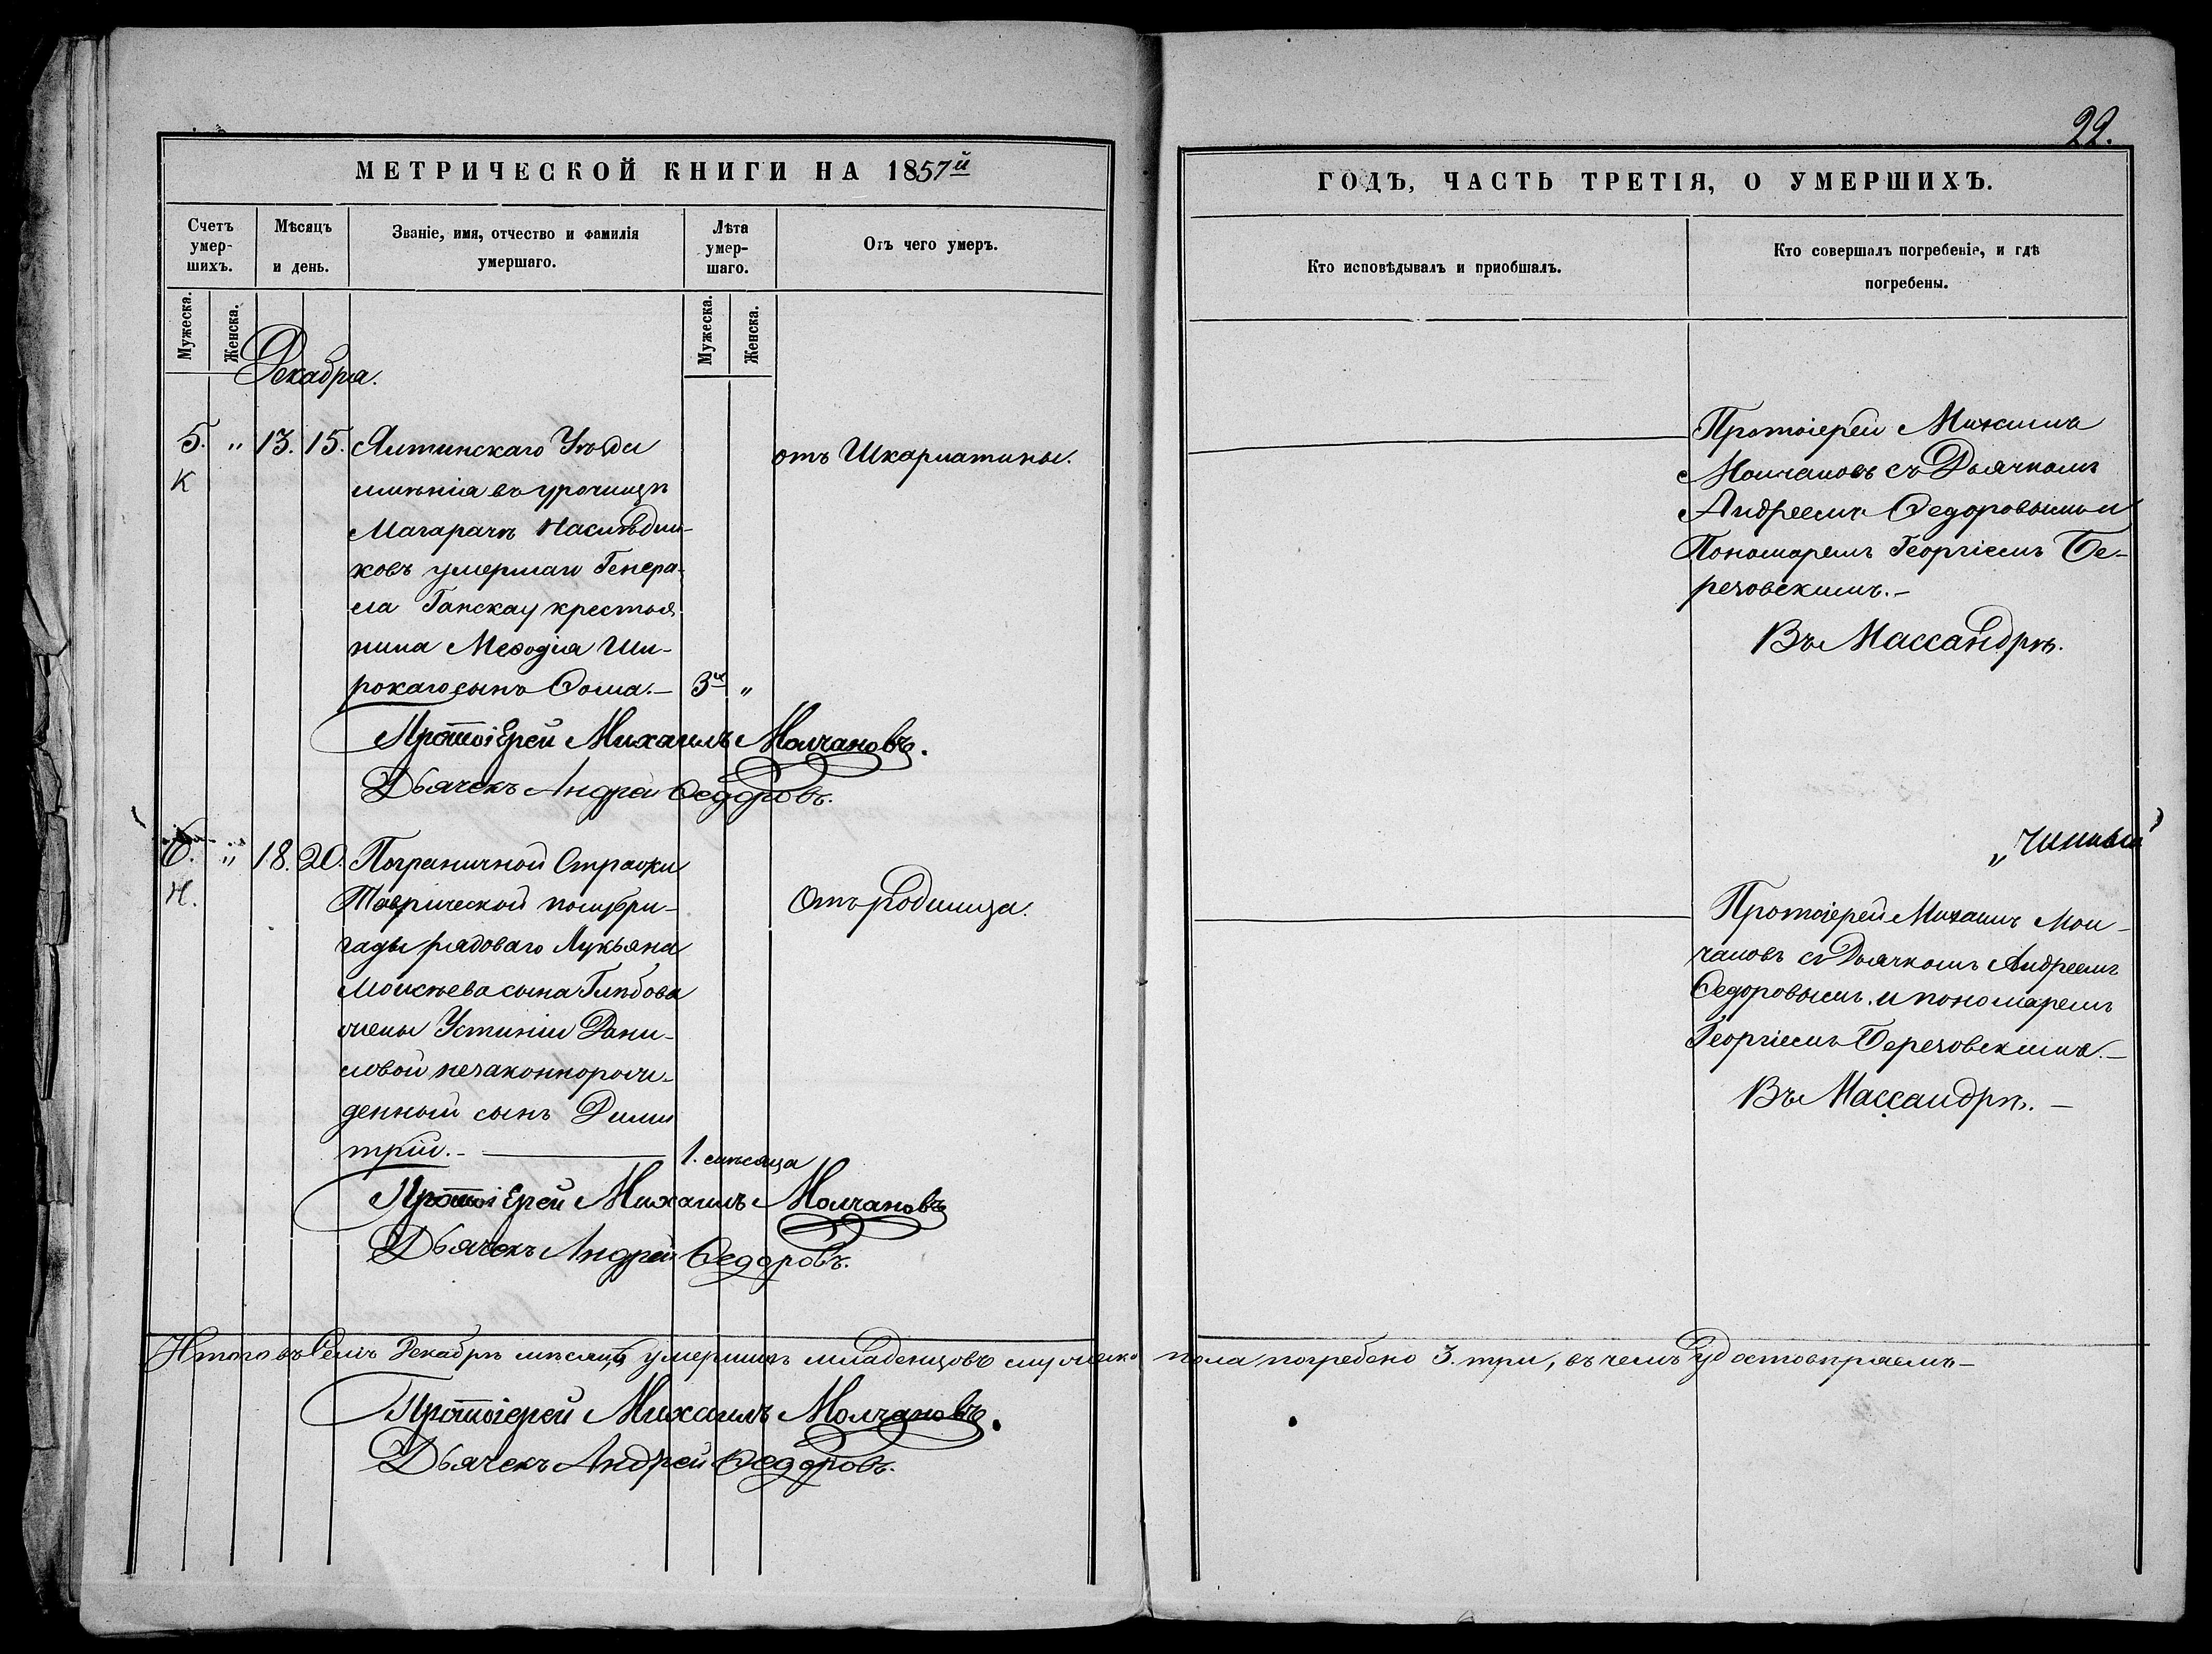 22.
МЕТРИЧЕСКОЙ КНИГИ НА 1857й
ГОДЪ, ЧАСТЬ ТРЕТІЯ, О УМЕРШИХЪ.
Счетъ умер-шихъ.
Мѣсяцъ и день.
Званіе, имя, отчество и фамилія умершаго.
Лѣта умер-шаго.
Отъ чего умеръ.
Кто исповѣдывалъ и пріобшалъ.
Кто совершалъ погребеніе, и гдѣ погребены.
Мужеска.
Женска.
Мужеска.
Женска.
Декабря.
5. " 13. 15.
К
Ялтинскаго Уѣзда
имѣнія въ урочищѣ
Магарачѣ Наслѣдни-
ковъ умершаго Генера-
ла Ганскау крестья
нина Меѳодія Ши-
рокаго сынъ Ѳома.— 3х "
отъ Шкарлатины.
Протоіерей Михаилъ
Молчановъ съ Дьячкомъ
Андреемъ Ѳедоровымъ и
Пономаремъ Георгіемъ Бе-
резовскимъ.—
Въ Массандрѣ.
ПротоіЕрей Михаилъ Молчановъ.
Дьячекъ Андрей Ѳедоровъ.
6. " 18. 20.
Н.
Пограничной Стражи
Таврической полубри-
гады рядоваго Лукьяна
Моисѣева сына Глѣбова
жены Устиніи Дани-
ловой незаконнорож-
денный сынъ Дими
трій.— 1. мѣсяца
Отъ родимца.
Протоіерей Михаилъ Мол-
чановъ съ Дьячкомъ Андреемъ
Ѳедоровымъ и пономаремъ
Георгіемъ Березовскимъ.—
Въ Массандрѣ.—
ПротоіЕрей Михаилъ Молчановъ
Дьячекъ Андрей Ѳедоровъ.
Итого въ Семъ Декабрѣ мѣсяцѣ умершихъ младенцовъ мужеска пола погребено 3. три, въ чемъ удостовѣряемъ—
Протоіерей Михаилъ Молчановъ.
Дьячекъ Андрей Ѳедоровъ.